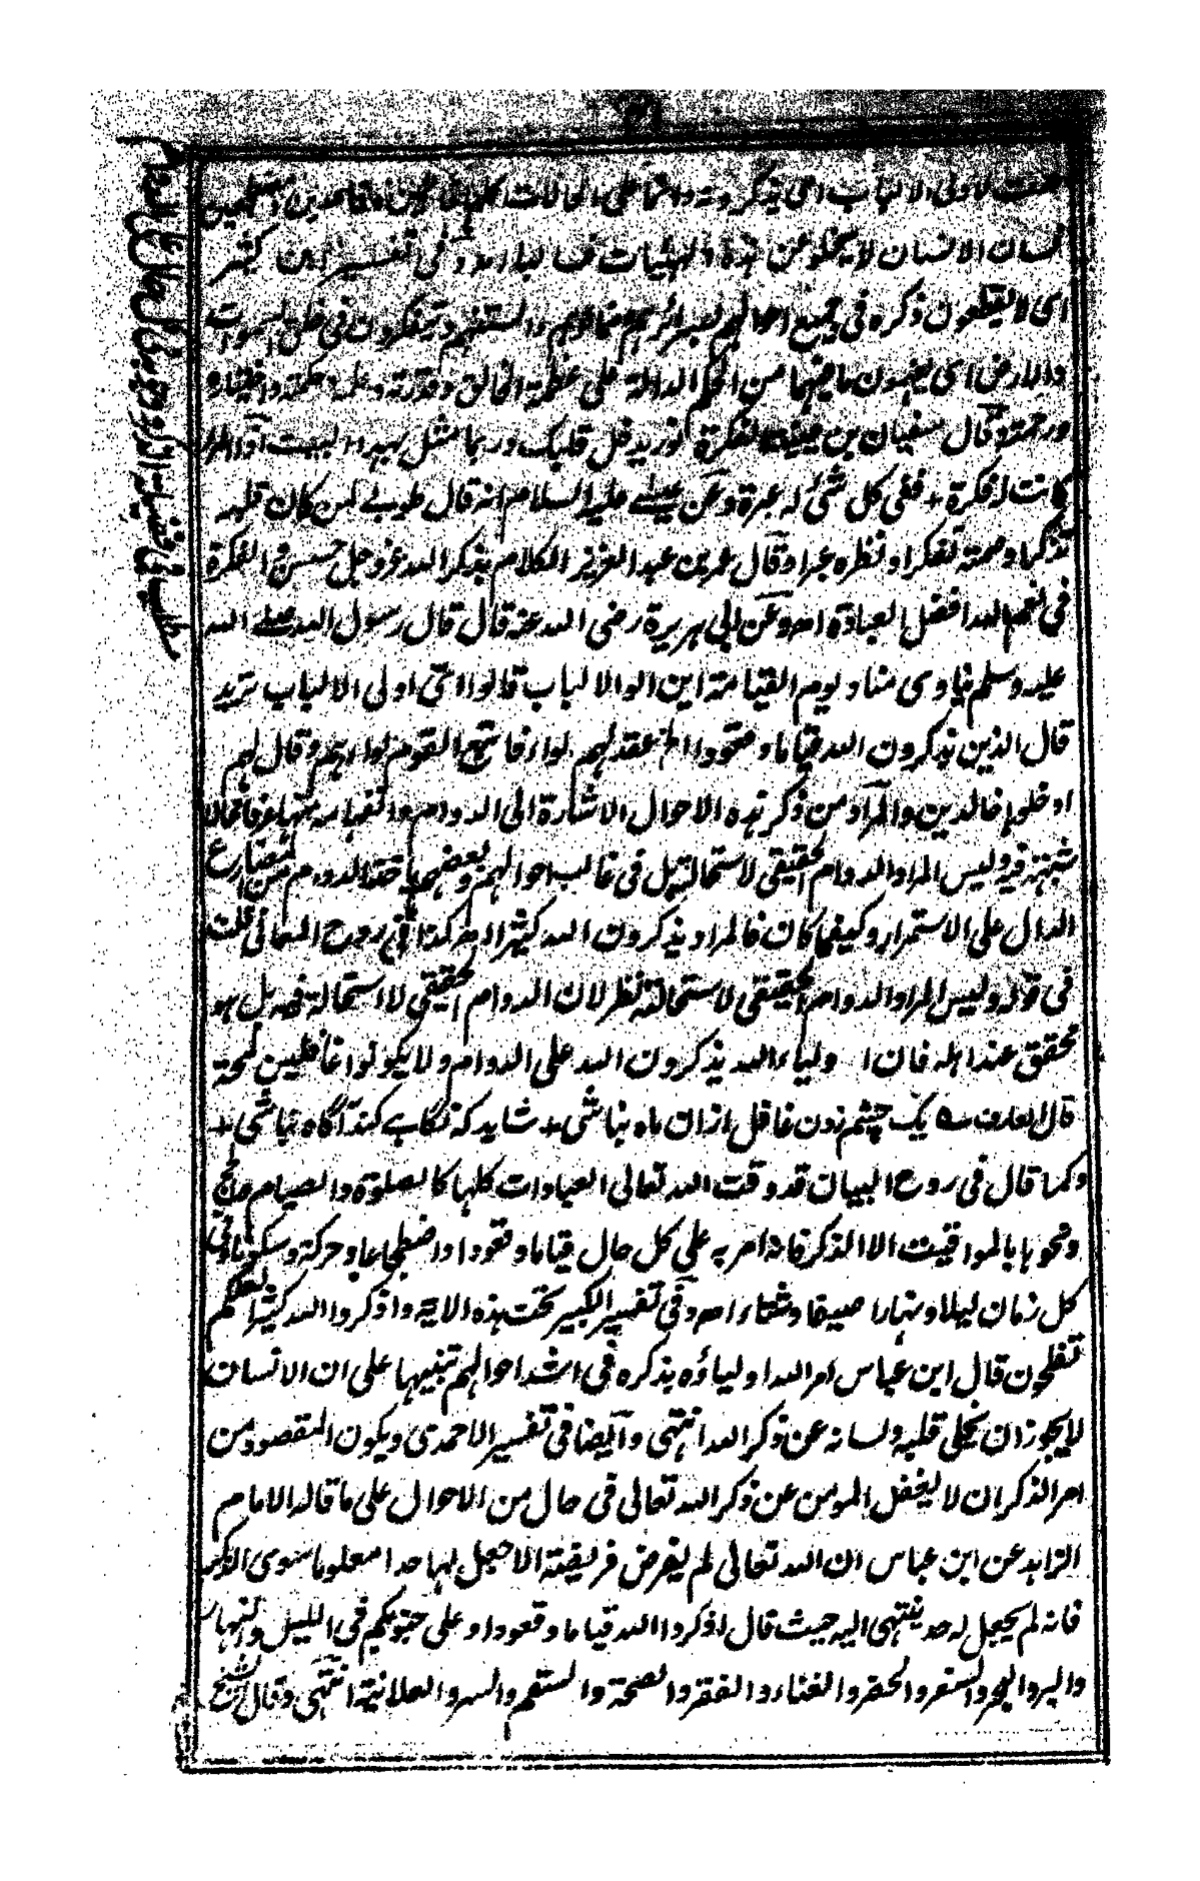 لاولى الالباب اى يذكرونه دائما على الحالات كلها قائمين وقاعدين ومضطجعين
لسان الانسان لا يخلو عن هذه الهيئات غالبا اه وفى تفسير ابن كثير
اى لا يقطعون ذكره فى جميع احوالهم بسرائرهم وضمائرهم والسنتهم ويتفكرون فى خلق السموات
والارض اى يفهمون ما فيهما من الحكم الدالة على عظمة الخالق وقدرته وعلمه وحكمته واختياره
ورحمته وقال سفيان بن عيينة الفكرة نور يدخل قلبك وربما تمثل بهذا البيت اذا المرء
كانت له فكرة + ففى كل شئ له عبرة وعن عيسے عليه السلام انه قال طوبے لمن كان قلبه
تذكرا وصمته تفكرا ونظره عبرا وقال عمر بن عبد العزيز الكلام بذكر الله عز وجل حسن والفكرة
فى نعم الله افضل العبادة اه وعن ابى هريرة رضى الله عنه قال قال رسول الله صلے الله
عليه وسلم ينادى مناد يوم القيامة اين اولوا الالباب قالوا اى اولى الالباب تريد
قال الذين يذكرون الله قياما وقعودا الخ عقد لهم لواء فاتبع القوم لواءهم وقال لهم
ادخلوها خالدين والمراد من ذكر هذه الاحوال الاشارة الى الدوام وانفهامه منها عرفا مما لا
شبهة فيه وليس المراد الدوام الحقيقى لاستحالته بل فى غالب احوالهم وبعضهم ياخذ الدوام من المضارع
الدال على الاستمرار وكيفما كان فالمراد يذكرون الله كثيرا اه كذا فى روح المعانى قلت
فى قوله وليس المراد الدوام الحقيقى لاستحالته نظر لان الدوام الحقيقى لا استحالة فيه بل هو
محقق عند اهله فان اولياء الله يذكرون الله على الدوام ولا يكونوا غافلين لمحة
قال العارف ے يک چشم زدن غافل ازان ماه نباشى + شايد كه نگاہے كند آگاه نباشى +
وكما قال فى روح البيان قد وقت الله تعالى العبادات كلها كالصلوة والصيام والحج
ونحوها بالمواقيت الا الذكر فانه امر به على كل حال قياما وقعودا واضطجاعا وحركة وسكونا وفى
كل زمان ليلا ونهارا صيفا وشتاء اه وفى تفسير الكبير تحت هذه الاية واذكروا الله كثيرا لعلكم
تفلحون قال ابن عباس امر الله اولياؤه بذكره فى اشد احوالهم تنبيها على ان الانسان
لا يجوز ان يخلى قلبه ولسانه عن ذكر الله انتهى وايضا فى تفسير الاحمدى ويكون المقصود من
امر الذكر ان لا يغفل المومن عن ذكر الله تعالى فى حال من الاحوال على ما قاله الامام
الزاهد عن ابن عباس ان الله تعالى لم يفرض فريضة الا جعل لها حدا معلوما سوى الذكر
فانه لم يجعل له حد ينتهى اليه حيث قال اذكروا الله قياما وقعودا وعلى جنوبكم فى الليل والنهار
والبر والبحر والسفر والحضر والغناء والفقر والصحة والسقم والسر والعلانية انتهى وقال الشيخ